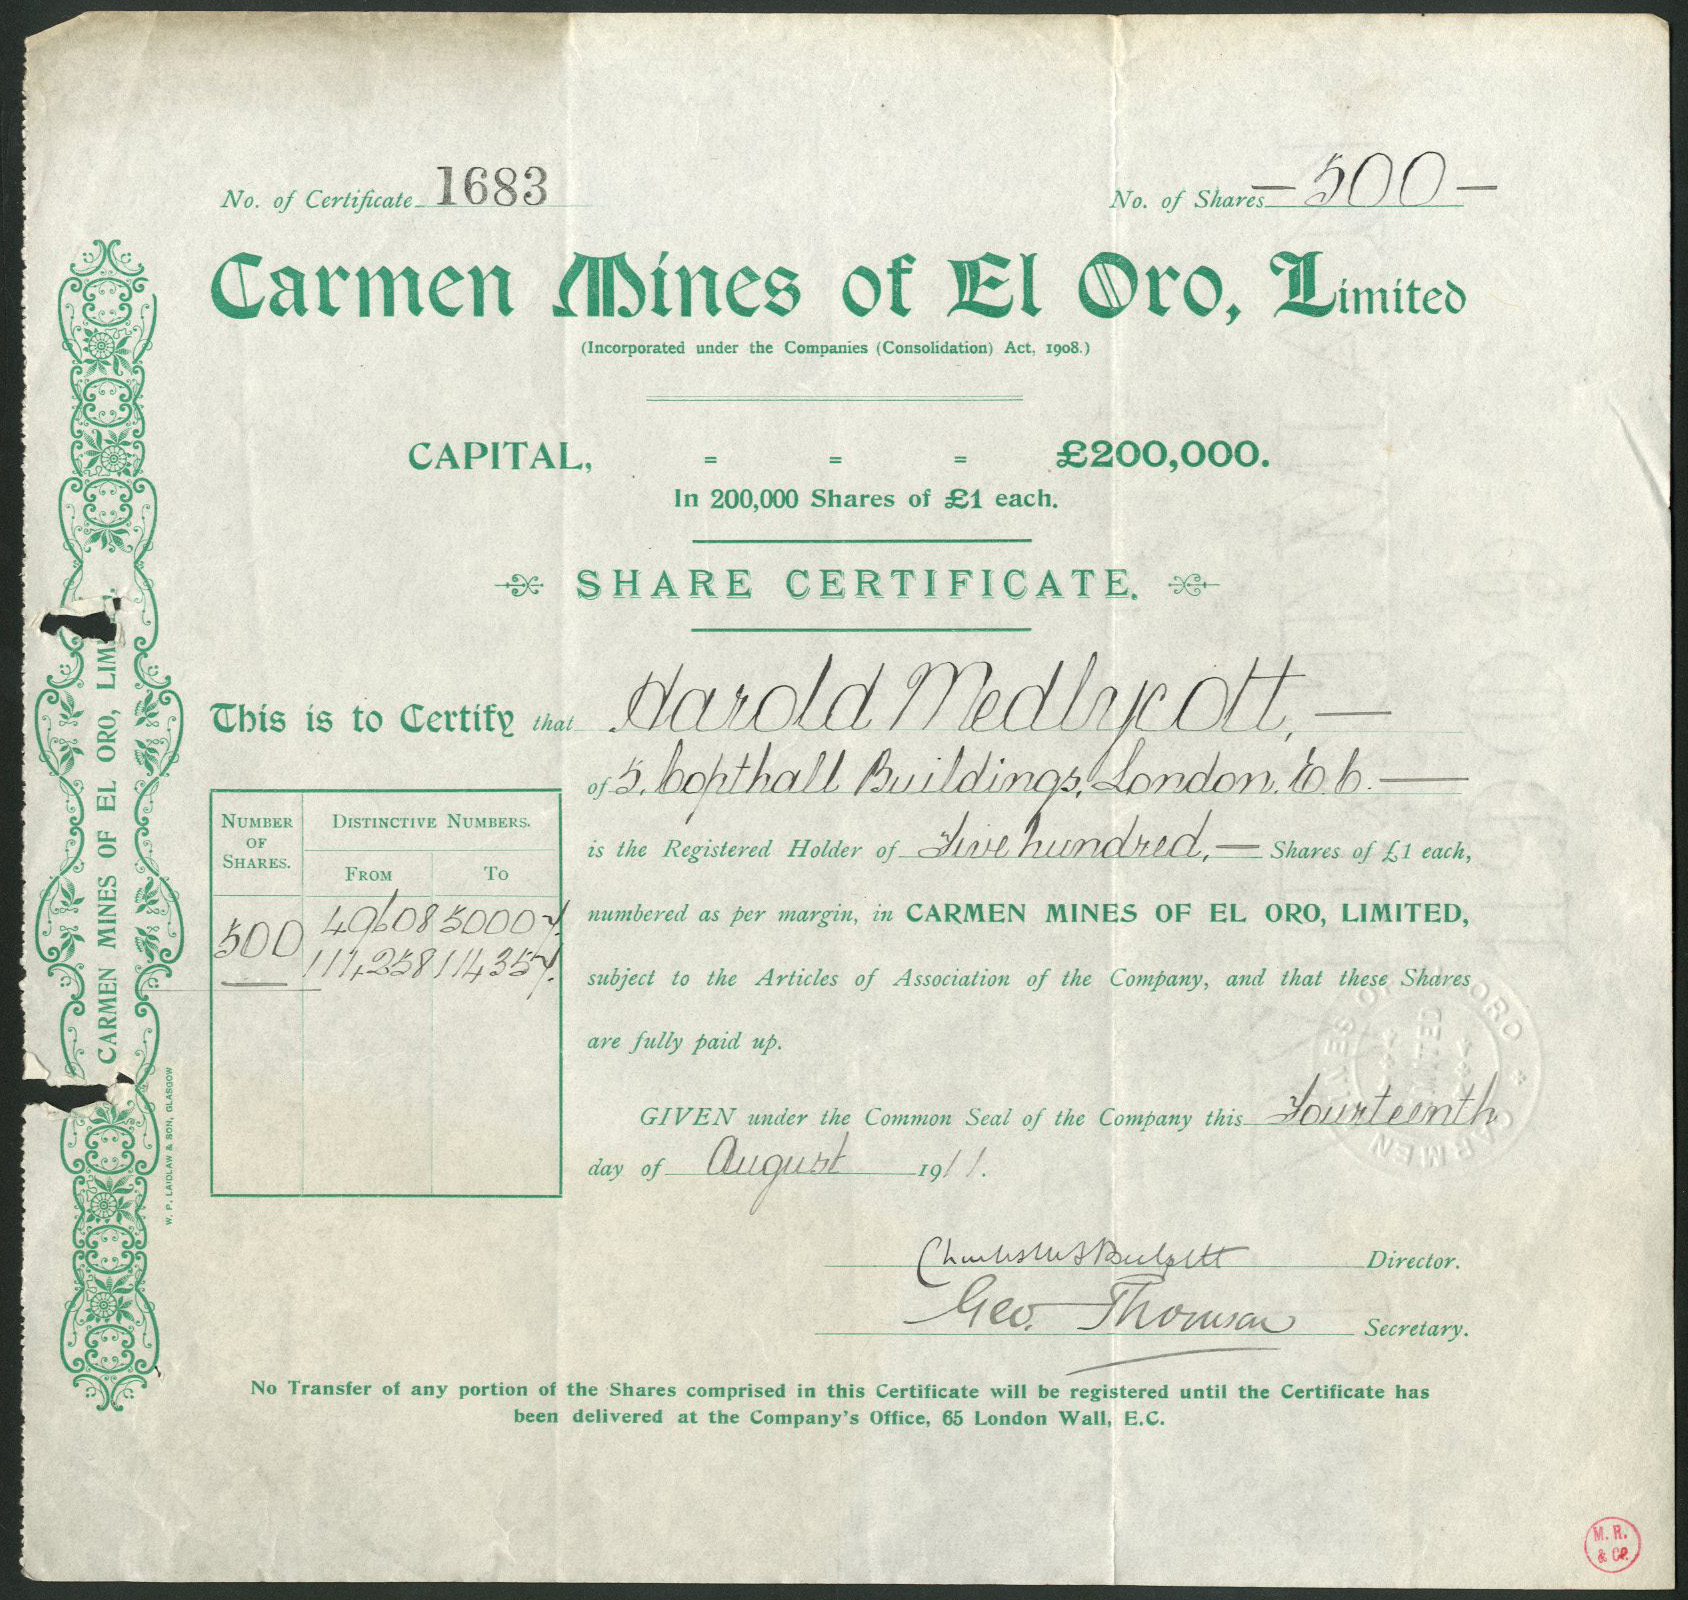 No. of Certificate 1683
No. of Shares — 500 —
Carmen Mines of El Oro, Limited
(Incorporated under the Companies (Consolidation) Act, 1908.)
CAPITAL, = = = £200,000.
In 200,000 Shares of £1 each.
SHARE CERTIFICATE.
This is to Certify that Harold Medlycott, —
of 5, Copthall Buildings, London. E.C. —
is the Registered Holder of Five hundred, — Shares of £1 each,
numbered as per margin, in CARMEN MINES OF EL ORO, LIMITED,
subject to the Articles of Association of the Company, and that these Shares
are fully paid up.
NUMBER OF SHARES.
DISTINCTIVE NUMBERS.
FROM TO
500
49608 50007.
114,258 114357.
GIVEN under the Common Seal of the Company this Fourteenth
day of August 1911.
Director.
Geo. Thomson Secretary.
No Transfer of any portion of the Shares comprised in this Certificate will be registered until the Certificate has
been delivered at the Company's Office, 65 London Wall, E.C.
CARMEN MINES OF EL ORO, LIM
W. P. LAIDLAW & SON, GLASGOW
CARMEN MINES OF ORO
LIMITED
M. R.
& Co.